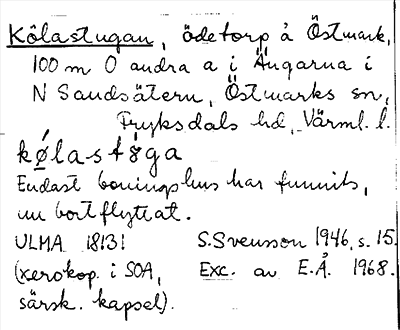 Kölastugan, ödetorp å Östmark,
100 m O andra a i Ängarna i
N Sandsätern, Östmarks sn,
Fryksdals hd, Värml. l.
kø̄́la-støga
Endast boningshus har funnits,
nu bortflyttat.
ULMA 18131 S. Svensson 1946, s. 15.
(xerokop. i SOA, Exc. av E.Å. 1968.
särsk. kapsel).